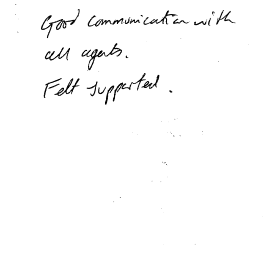 Good communication with
all agents.
Felt supported.